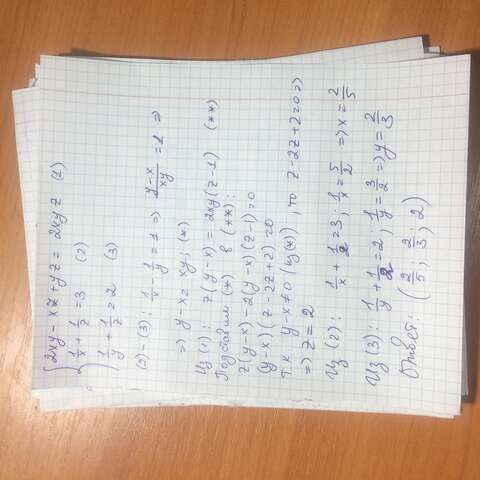 2xy - xz + yz = 2xyz (1)
1/x + 1/z = 3 (2)
1/y + 1/z = 2 (3)
(2) - (3): 1/x - 1/y = 1 => (y-x)/xy = 1 =>
=> y-x = xy; (*)
Из (1): z(y-x) = 2xy(z-1) (**)
Подставим (*) в (**):
z(y-x) - 2(y-x)(z-1) = 0
(y-x)(z - 2z + 2) = 0
т.к y-x ≠ 0 (из(*)), то z - 2z + 2 = 0 =>
=> z = 2
Из (2): 1/x + 1/2 = 3; 1/x = 5/2 => x = 2/5
Из (3): 1/y + 1/2 = 2; 1/y = 3/2 => y = 2/3
Ответ: (2/5; 2/3; 2)